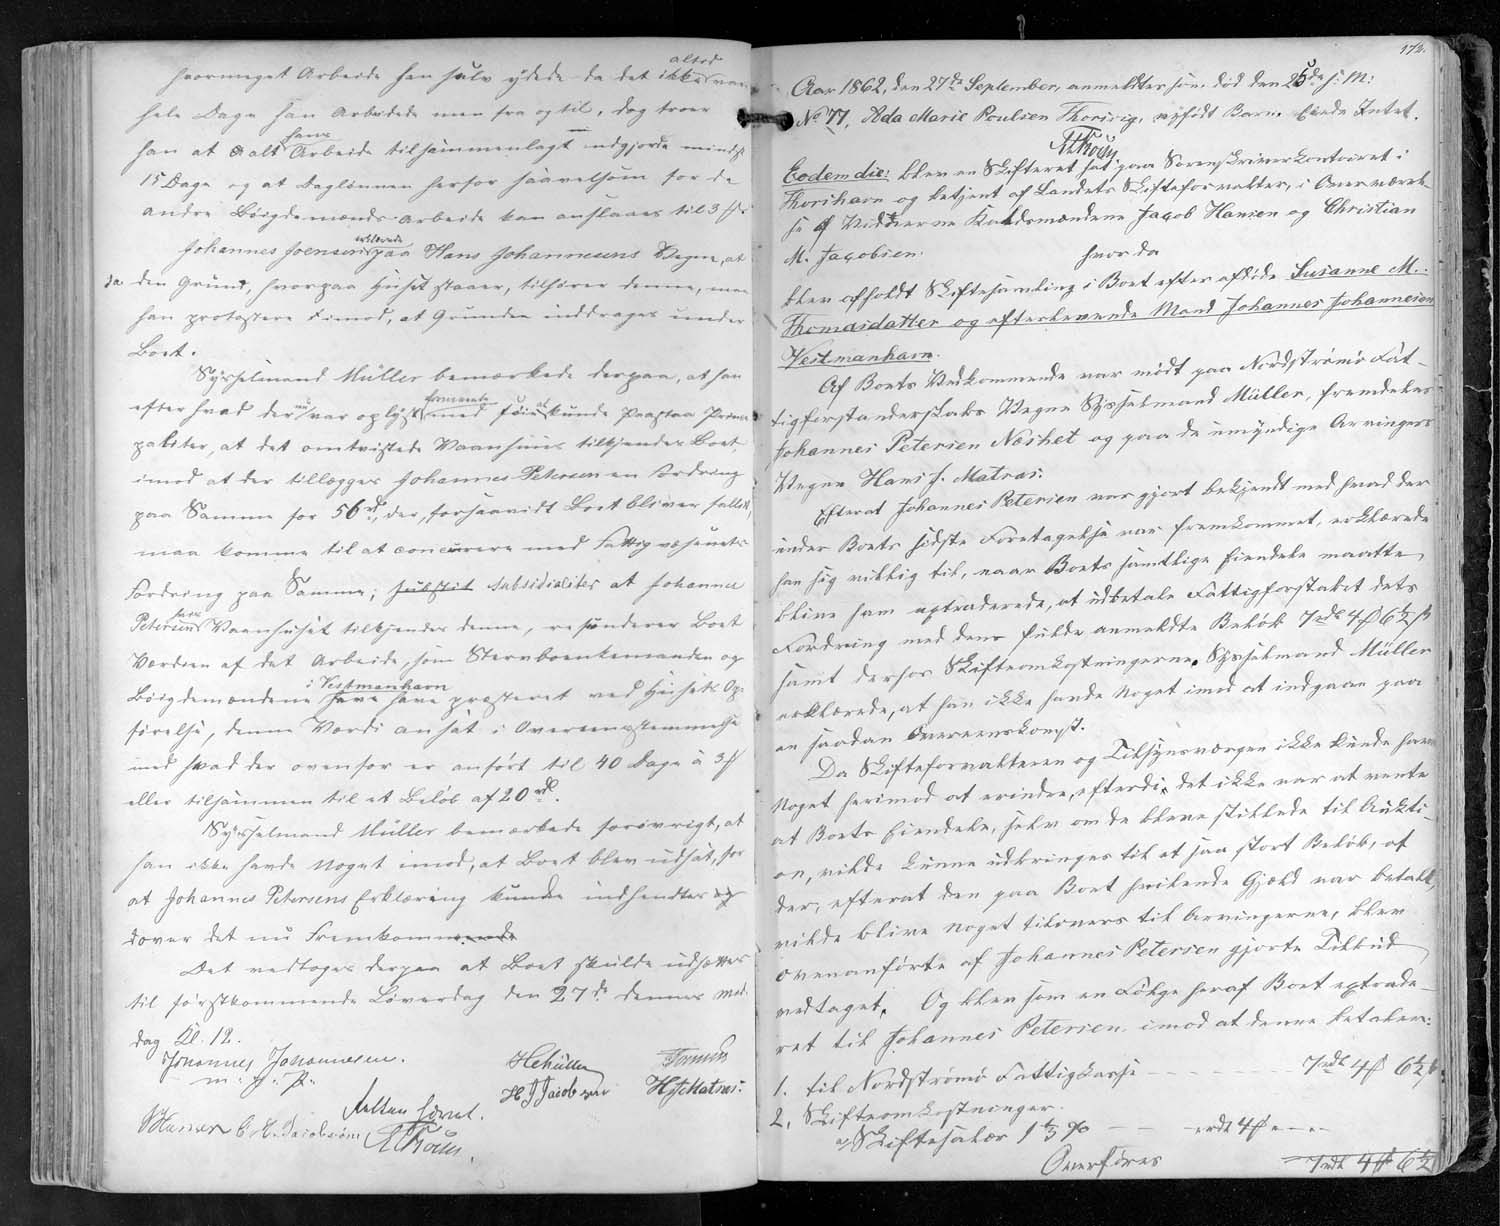 altid
hvormeget Arbeide han selv ydede da det ikke var
hele Dage han Arbeidede men fra og til, dog troer
hans
han at alt Arbeide tilsammenlagt udgjorde mindst
15 Dage og at Daglønnen herfor saavelsom for de
andre Bøigdemænds Arbeide kan anslaaes til 3 ß.
erklærede
Johannes Joensen paa Hans Johannesens Vegne, at
da den Grund, hvorpaa Huset staaer, tilhører denne, maa
han protestere imod, at Grunden inddrages under
Boet.
Sysselmand Müller bemærkede derpaa, at han
nu
efter hvad der var oplyst med Føie kunde paastaa prin-
cipaliter, at det omtvistede Vaanhuus tilkjendes Boet,
imod at der tillægges Johannes Petersen en Fordring
paa Samme for 56 rd, der, forsaavidt Boet bliver fallit,
maa komme til at concurrere med Fattigvæsenets
Fordring paa Samme; subsidialiter at Johannes
hans
Petersens Vaanhuset tilkjendes denne, refunderer Boet
Værdien af det Arbeide, som Steenbrækkemanden og
i Vestmanhavn
Bøigdemændene have præsteret ved Husets Op-
førelse, denne Værdi ansat i Overeensstemmelse
med hvad der ovenfor er anført til 40 Dage à 3 ß
eller tilsammen til et Beløb af 20 rd.
Sysselmand Müller bemærkede forøvrigt, at
han ikke havde Noget imod, at Boet blev udsat, for
at Johannes Petersens Erklæring kunde indhentes
over det nu Fremkomne
Det vedtoges derpaa at Boet skulde udsættes
til førstkommende Løverdag den 27de dennes Mid-
dag Kl. 12.
Johannes Johannesen.
m. f. P.
HMüller
H J Jacobsen
HJMatras.
Retten hævet.
JHansen C M Jacobsen
HTröun.
172.
Aar 1862, den 27de September, anmeldtes som død den 25de s: M:
No 77, Ada Marie Poulsen Thorsvig, nyfødt Barn. Eiede Intet.
HTröun
Eodem die: blev en Skifteret sat paa Sorenskriverkontoiret i
Thorshavn og betjent af Landets Skifteforvalter, i Overværel-
se af Vidnerne Raadsmændene Jacob Hansen og Christian
M. Jacobsen.
hvor da
blev afholdt Skiftesamling i Boet efter afdøde Susanne M.
Thomasdatter og efterlevende Mand Johannes Johannesen
Vestmanhavn.
Af Boets Vedkommende var mødt paa Nordstrømø Fat-
tigforstanderskabs Vegne Sysselmand Müller, fremdeles
Johannes Petersen Næshet og paa de umyndige Arvingers
Vegne Hans J. Matras:
Efterat Johannes Petersen var gjort bekjendt med hvad der
under Boets sidste Foretagelse var fremkommet, erklærede
han sig villig til, naar Boets samtlige Eiendele maatte
blive ham extraderede, at udbetale Fattigforstabet dets
Fordring med dens fulde anmeldte Beløb 7 rdl 4 ß 6½ ß
samt derhos Skifteomkostningerne. Sysselmand Müller
erklærede, at han ikke havde Noget imod at indgaae paa
en saadan Overeenskomst.
Da Skifteforvalteren og Tilsynsværgen ikke kunde have
Noget herimod at erindre, efterdi det ikke var at vente
at Boets Eiendele, selv om de bleve stillede til Aukti-
on, vilde kunne udbringes til et saa stort Beløb, at
der, efterat den paa Boet hvilende Gjæld var betalt,
vilde blive noget tilovers til Arvingerne, blev
ovenanførte af Johannes Petersen gjorte Tilbud
vedtaget. Og blev som en Følge heraf Boet extrade-
ret til Johannes Petersen imod at denne betaler:
1. til Nordstrømø Fattigkasse 7 rdl 4 ß 6½ ß
2, Skifteomkostninger.
a, Skiftesalær 1⅓ % rdl 4 ß
Overføres 7 rdl 4 ß 6½